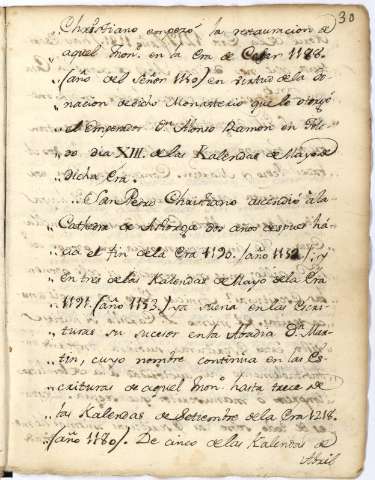 30
Christiano empezó la restauracion de
„ aquel Mon.º en la Era de Cesar 1188.
„ (año del Señor 1150) en virtud de la do-
„ nacion de dicho Monasterio que lo otorgó
„ el Emperador D.ⁿ Alonso Ramon en
„ dia XIII. de las Kalendas de Mayo de
„ dicha Era.
„ San Pedro Christiano ascendió a la
„ Cathedra de Astorga dos años despues há-
„ cia el fin de la Era 1190. (año 1152): y
„ en tres de las Kalendas de Mayo de la Era
„ 1191. (año 1153.) ya suena en las Escri-
„ turas su sucesor en la Abadia D.ⁿ Mar-
„ tin, cuyo nombre continua en las Es-
„ crituras de aquel Mon.º hasta trece de
„ las Kalendas de Setiembre de la Era 1218.
„ (año 1180). De cinco de las Kalendas de
Abril